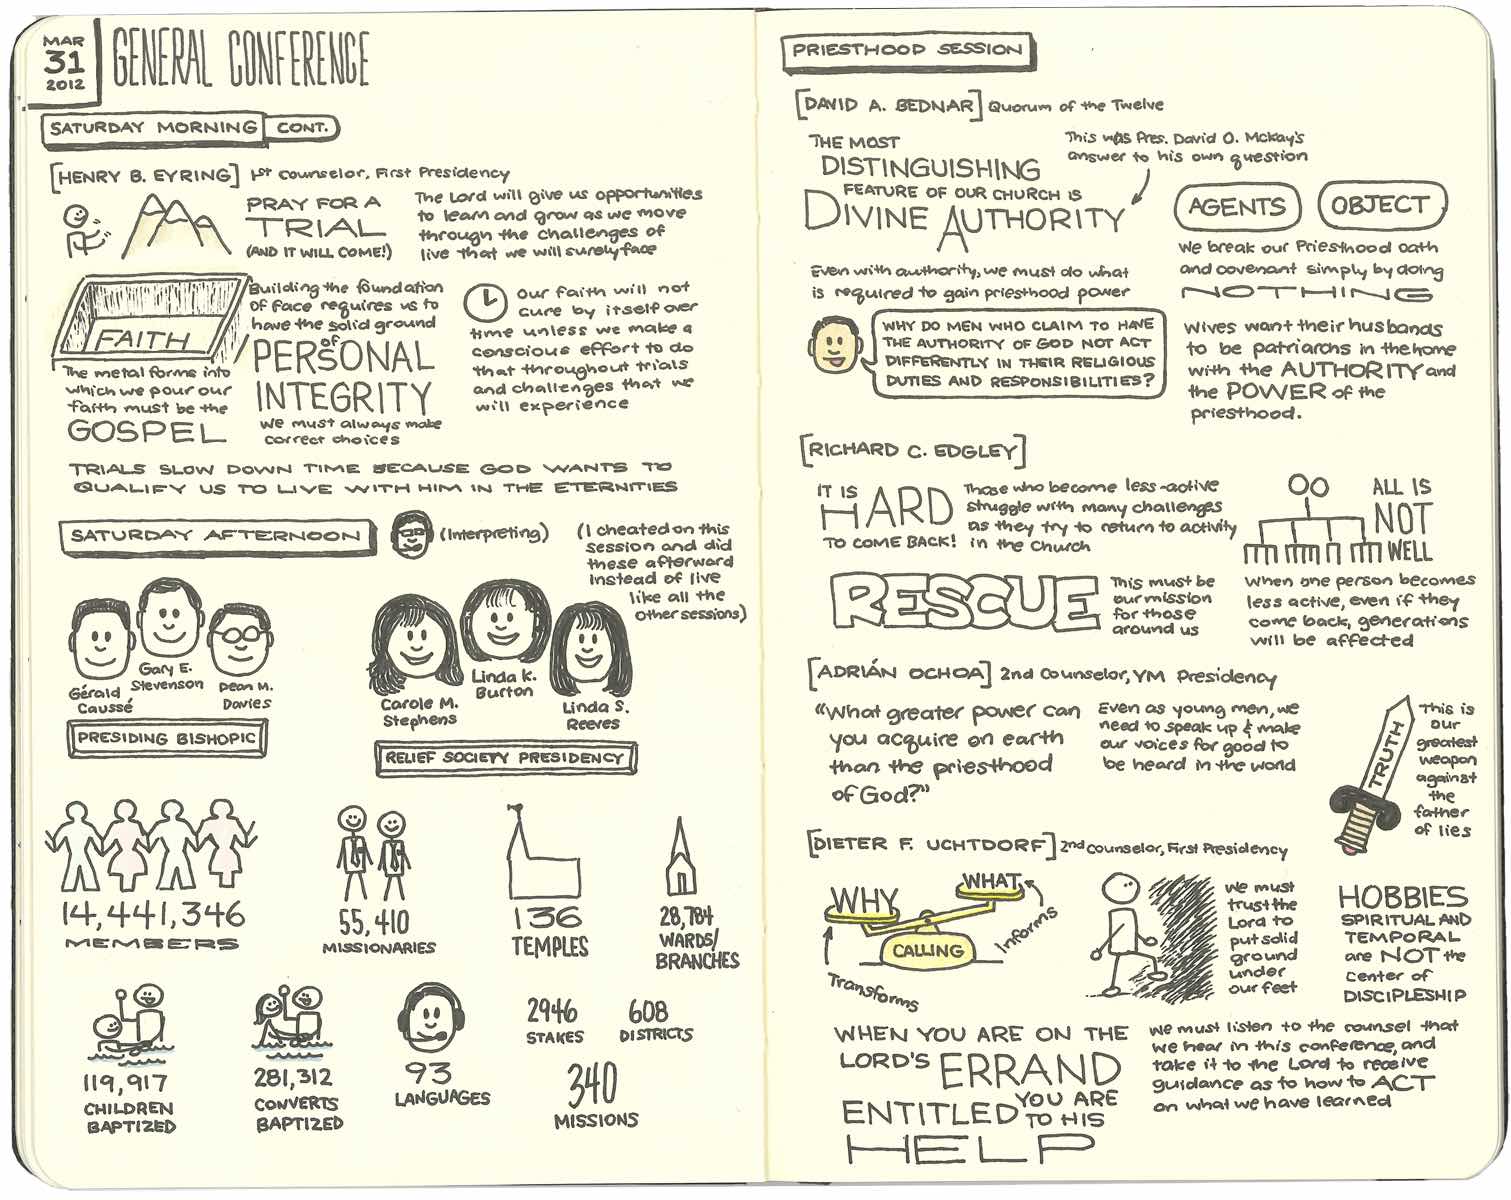 MAR
31
2012
GENERAL CONFERENCE
SATURDAY MORNING CONT.
[HENRY B. EYRING] 1st counselor, First Presidency
PRAY FOR A
TRIAL
(AND IT WILL COME!)
The Lord will give us opportunities
to learn and grow as we move
through the challenges of
live that we will surely face
FAITH
The metal forms into
which we pour our
faith must be the
GOSPEL
Building the foundation
of face requires us to
have the solid ground
of
PERSONAL
INTEGRITY
We must always make
correct choices
Our faith will not
cure by itself over
time unless we make a
conscious effort to do
that throughout trials
and challenges that we
will experience
TRIALS SLOW DOWN TIME BECAUSE GOD WANTS TO
QUALIFY US TO LIVE WITH HIM IN THE ETERNITIES
SATURDAY AFTERNOON
(Interpreting)
(I cheated on this
session and did
these afterward
instead of live
like all the
other sessions)
Gérald
Caussé
Gary E.
Stevenson
Dean M.
Davies
PRESIDING BISHOPIC
Carole M.
Stephens
Linda K.
Burton
Linda S.
Reeves
RELIEF SOCIETY PRESIDENCY
14,441,346
MEMBERS
55,410
MISSIONARIES
136
TEMPLES
28,784
WARDS/
BRANCHES
119,917
CHILDREN
BAPTIZED
281,312
CONVERTS
BAPTIZED
93
LANGUAGES
2946
STAKES
608
DISTRICTS
340
MISSIONS
PRIESTHOOD SESSION
[DAVID A. BEDNAR] Quorum of the Twelve
THE MOST
DISTINGUISHING
FEATURE OF OUR CHURCH IS
DIVINE AUTHORITY
This was Pres. David O. McKay's
answer to his own question
Even with authority, we must do what
is required to gain priesthood power
WHY DO MEN WHO CLAIM TO HAVE
THE AUTHORITY OF GOD NOT ACT
DIFFERENTLY IN THEIR RELIGIOUS
DUTIES AND RESPONSIBILITIES?
AGENTS OBJECT
We break our Priesthood oath
and covenant simply by doing
NOTHING
Wives want their husbands
to be patriarchs in the home
with the AUTHORITY and
the POWER of the
priesthood.
[RICHARD C. EDGLEY]
IT IS
HARD
TO COME BACK!
Those who become less-active
struggle with many challenges
as they try to return to activity
in the Church
ALL IS
NOT
WELL
RESCUE
This must be
our mission
for those
around us
When one person becomes
less active, even if they
come back, generations
will be affected
[ADRIÁN OCHOA] 2nd Counselor, YM Presidency
"What greater power can
you acquire on earth
than the priesthood
of God?"
Even as young men, we
need to speak up & make
our voices for good to
be heard in the world
TRUTH
This is
our
greatest
weapon
against
the
father
of lies
[DIETER F. UCHTDORF] 2nd Counselor, First Presidency
WHY
WHAT
CALLING
Transforms
Informs
We must
trust the
Lord to
put solid
ground
under
our feet
HOBBIES
SPIRITUAL AND
TEMPORAL
are NOT the
center of
DISCIPLESHIP
WHEN YOU ARE ON THE
LORD'S ERRAND
YOU ARE
ENTITLED TO HIS
HELP
We must listen to the counsel that
we hear in this conference, and
take it to the Lord to receive
guidance as to how to ACT
on what we have learned